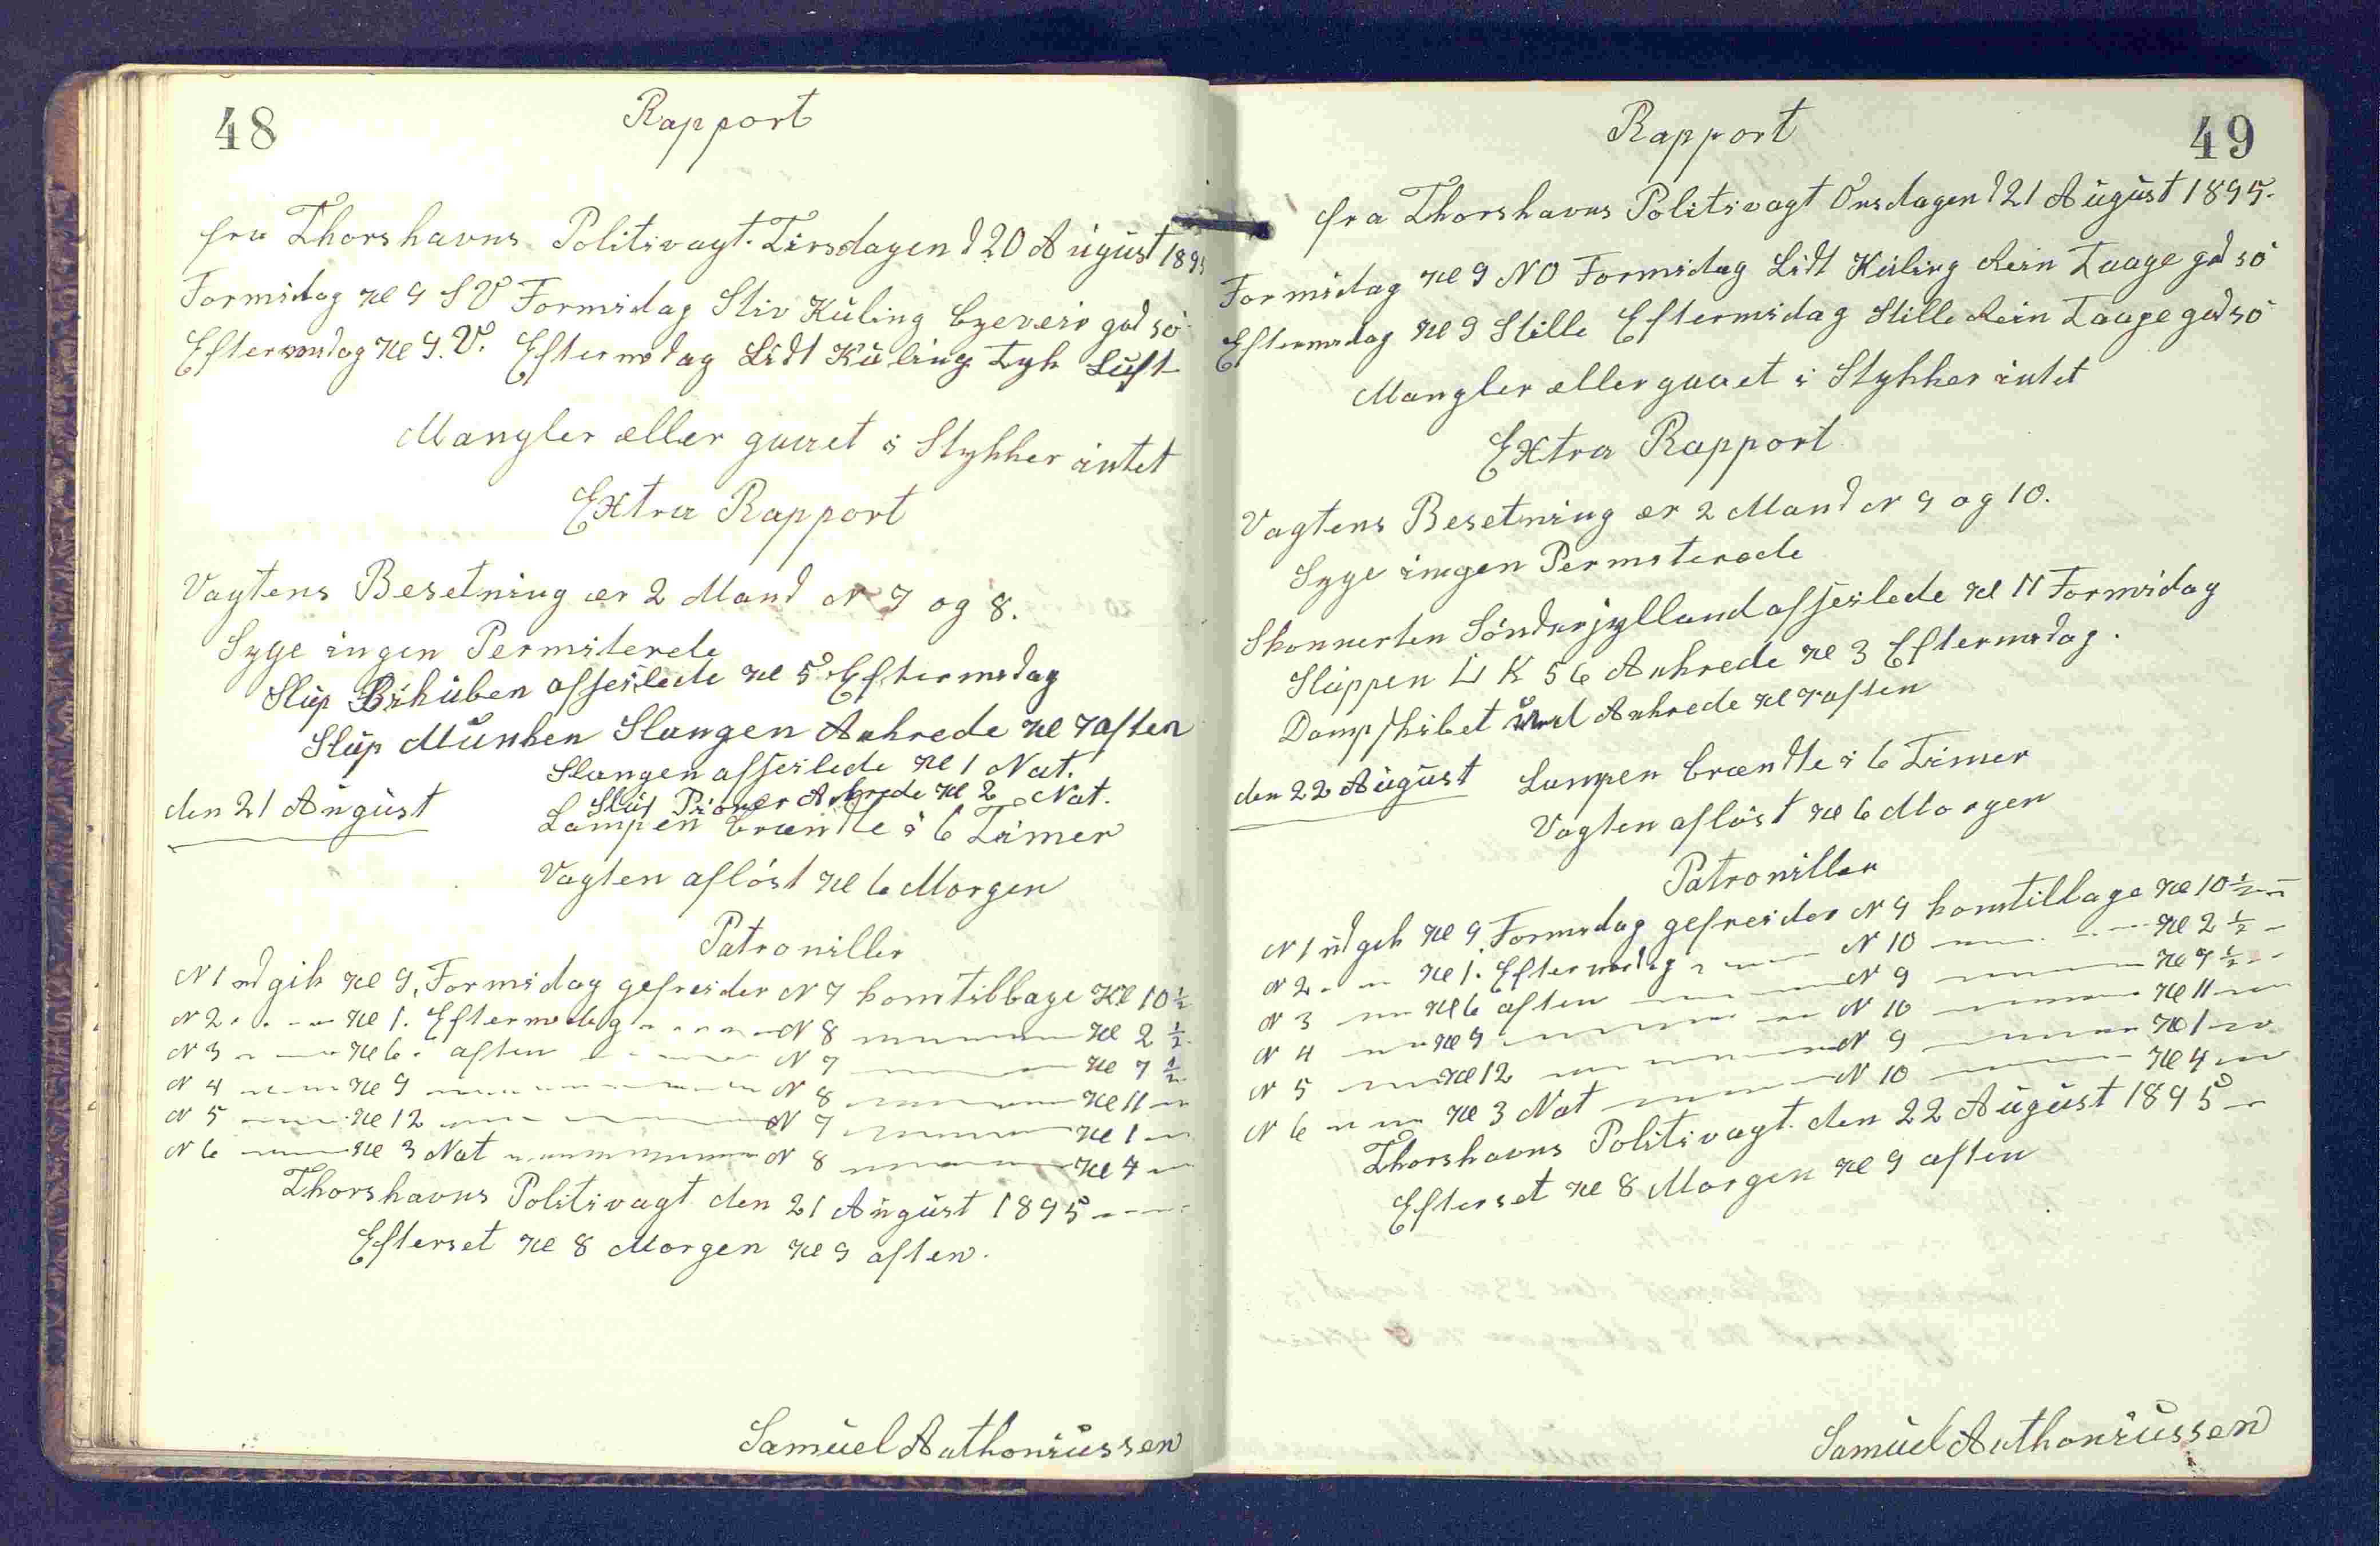 48
Rapport
fra Thorshavns Politivagt. Tirsdagen d 20 August 1895
Formidag Kl 9 SV Formidag Stiv Kuling byeveir god sö
Eftermidag Kl 9. V. Eftermidag Lidt Kuling Tyk Luft
Mangler æller gaaet i Stykker intet
Extra Rapport
Vagtens Besetning er 2 Mand N 7 og 8.
Syge ingen Permiterede
Slup Bikuben afseilede Kl 5 Eftermidag
Slup Munken Slangen Ankrede Kl 7 aften
Slangen afseilede Kl 1 Nat.
Slup Pioner Ankrede Kl 2 Nat.
den 21 August Lampen brændte i 6 Timer
Vagten aflöst Kl 6 Morgen
Patroniller
N 1 udgik Kl 9, Formidag gefreider N 7 komtilbage Kl 10 1/2
N 2 Kl 1. Eftermidag N 8 Kl 2 1/2
N 3 Kl 6. aften N 7 Kl 7 1/2
N 4 Kl 9 N 8 Kl 11
N 5 Kl 12 N 7 Kl 1
N 6 Kl 3 Nat N 8 Kl 4
Thorshavns Politivagt den 21 August 1895
Efterset Kl 8 Morgen Kl 9 aften.
Samuel Anthoniussen
Rapport
49
fra Thorshavns Politivagt Onsdagen d 21 August 1895.
Formidag Kl 9 NO Formidag Lidt Kuling Rein Taage god sö
Eftermidag Kl 9 Stille Eftermidag Stille Rein Taage god sö
Mangler æller gaaet i Stykker intet
Extra Rapport
Vagtens Besetning er 2 Mand N 9 og 10.
Syge ingen Permiterede
Skonnerten Sönderjylland afseilede Kl 11 Formidag
Sluppen L K 56 Ankrede Kl 3 Eftermidag.
Dampskibet Ankrede Kl 7 aften
den 22 August Lampen brændte i 6 Timer
Vagten aflöst Kl 6 Morgen
Patroniller
N 1 udgik Kl 9, Formidag gefreider N 9 komtilbage Kl 10 1/2
N 2 Kl 1. Eftermidag N 10 Kl 2 1/2
N 3 Kl 6 aften N 9 Kl 7 1/2
N 4 Kl 9 N 10 Kl 11
N 5 Kl 12 N 9 Kl 1
N 6 Kl 3 Nat N 10 Kl 4
Thorshavns Politivagt. den 22 August 1895
Efterset Kl 8 Morgen Kl 9 aften
Samuel Anthoniussen